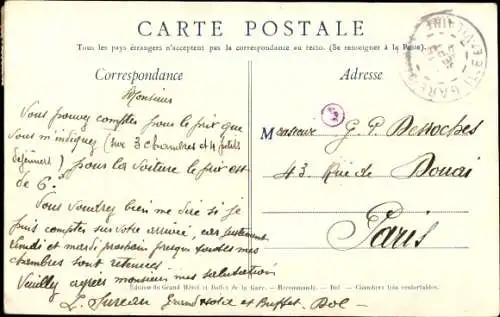 CARTE POSTALE
Tous les pays étrangers n'acceptent pas la correspondance au recto. (Se renseigner à la Poste).
Correspondance
Adresse
Monsieur
Vous pouvez compter pour le prix que
vous m'indiquez (sur 3 chambres et 4 petits
déjeuners) pour la voiture le prix est
de 6.
Vous voudrez bien me dire si je
puis compter sur votre arrivée, car justement
lundi et mardi prochain presque toutes mes
chambres sont retenues
Veuillez agréer monsieur mes salutations
Grand Hotel et Buffet. Dol
Monsieur G. P. Desroches
43 Rue de Douai
Paris
Edition du Grand Hôtel et Buffet de la Gare. - Recommandé. - Dol - Chambres très confortables.
GARE